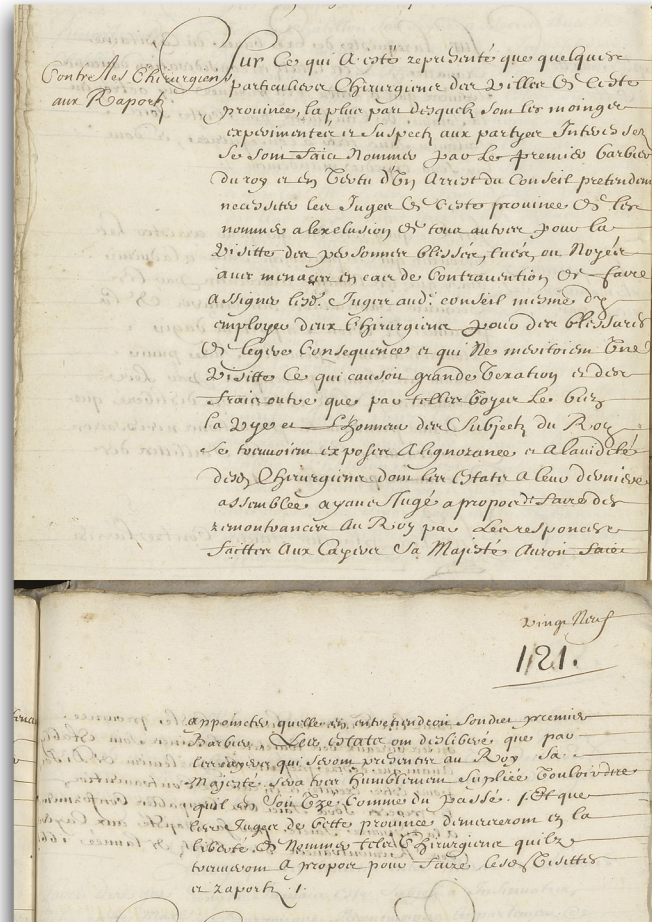 Contre les Chirurgiens
aux Raportz
Sur Ce qui A esté representé que quelques
particuliers Chirurgiens des Villes de Ceste
province, la plus part desquelz sont les moings
experimentez et suspectz aux partyes Interessez
Se sont faict Nommer par Le premier barbier
du roy et en Vertu d'Un Arrest du Conseil pretendent
necessiter les Juges de Ceste province de les
nommer a lexclusion de tous autres pour la
Visitte des personnes blissées, tuées, ou Noyées
avec menaces en cas de Contravention de faire
Assigner lesd. Juges aud. conseil mesme d'y
employer deux Chirurgiens pour des blessures
de legere Consequence et qui Ne meritoient Une
Visitte Ce qui causoit grande Vexation et des
fraiz outre que par telles Voyes Le bien
la Vye et L'honneur des Subjectz du Roy
se trouvoient exposez A lignorance et A lavidité
desd. Chirurgiens dont les Estatz A leur derniere
assemblée ayans Jugé a propos de faire des
remontrances Au Roy par Les responces
faittes Aux Cayers Sa Majesté Auroit faict
Vingt Neuf
121.
appointer quelle en entretiendroit sondict premier
Barbier, Les Estatz ont deslibéré que par
les cayers qui seront presentez au Roy Sa
Majesté sera tres humblement supliée Vouloir estre
quil en soit Uzé Comme du passé. Et que
les Juges de Cette province demeureront en la
liberté de Nommer telz Chirurgiens quilz
trouveront A propos pour faire lesd. Visittes
et raportz.